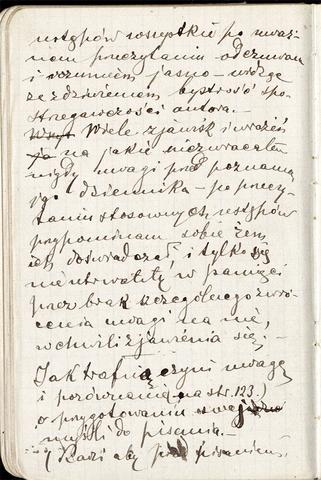 ustępów wszystkie po uważ-
niem przeczytaniu odczuwam
i rozumiem jasno – widzę
ze zdziwieniem bystrość spo-
strzegawczości autora. –
Wiele zjawisk i wrażeń
na jakie nie zwracałem
nigdy uwagi przed poznaniem
jego dziennika – po przeczy-
taniu stosownych ustępów
przypominam sobie żem
ich doświadczał, i tylko się
nie utrwaliły w pamięci
przez brak szczególnego zwró-
cenia uwagi na nie,
w chwili zjawienia się. –
Jak trafnią czyni uwagę
i porównanie, na str. 123.)
o przygotowaniu swojej
myśli do pisania. –
(Radzi aby przed pisaniem